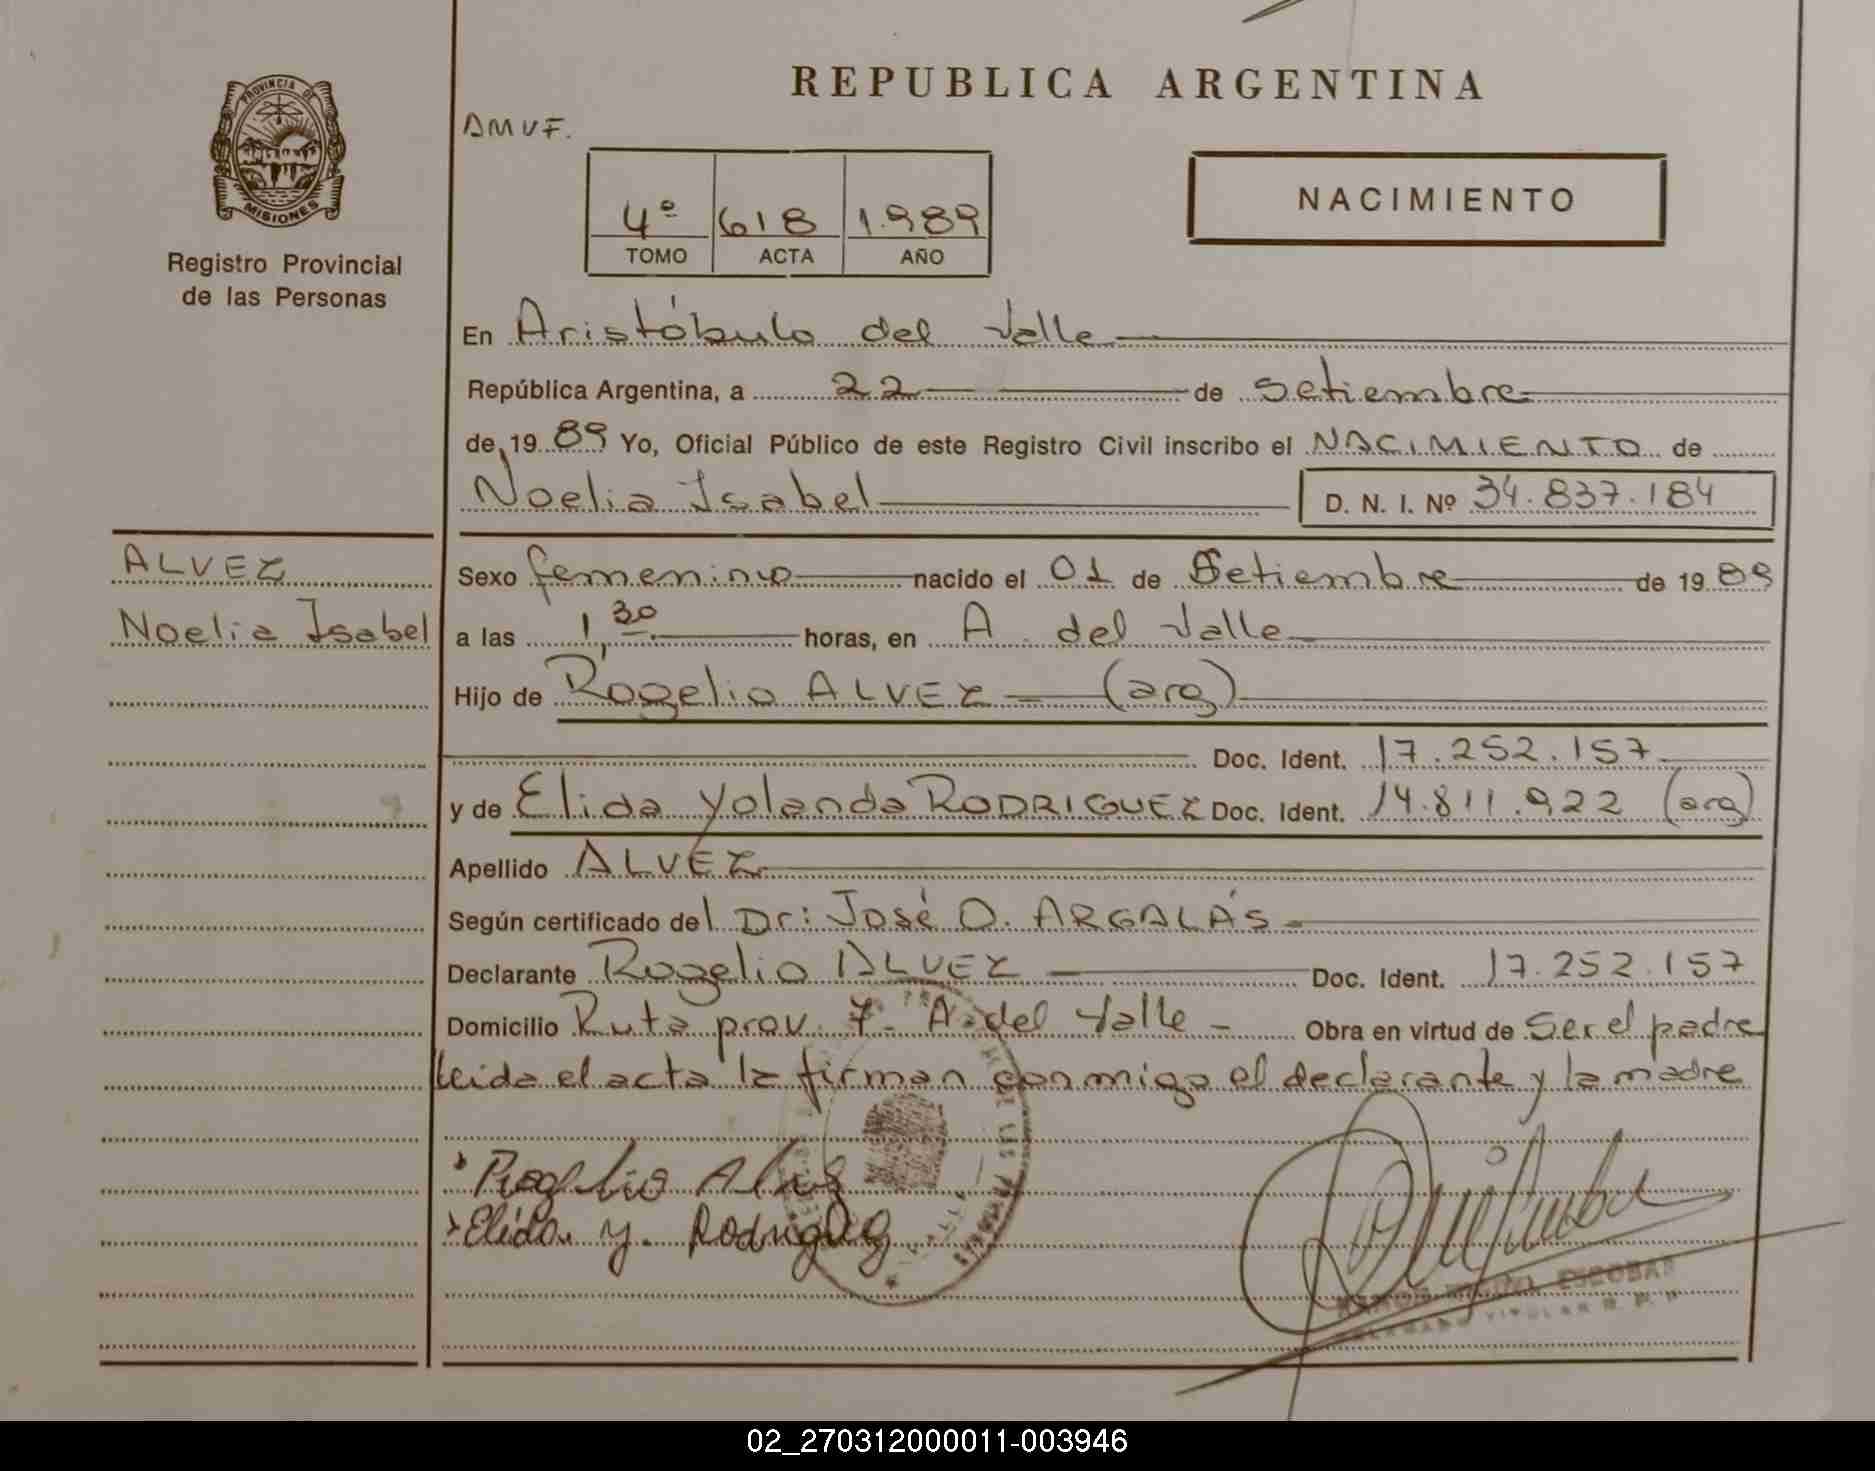 REPUBLICA ARGENTINA
PROVINCIA DE
MISIONES
Registro Provincial
de las Personas
AMVF.
4º 618 1.989
TOMO ACTA AÑO
NACIMIENTO
En Aristóbulo del Valle
República Argentina, a 22 de setiembre
de 19 89 Yo, Oficial Público de este Registro Civil inscribo el NACIMIENTO de
Noelia Isabel D. N. I. Nº 34.837.184
ALVEZ
Noelia Isabel
Sexo femenino nacido el 01 de Setiembre de 19 89
a las 1,30 horas, en A. del Valle
Hijo de Rogelio ALVEZ (arg)
Doc. Ident. 17.252.157
y de Elida Yolanda RODRIGUEZ Doc. Ident. 14.811.922 (arg)
Apellido ALVEZ
Según certificado del Dr: José O. ARGALÁS
Declarante Rogelio ALVEZ Doc. Ident. 17.252.157
Domicilio Ruta prov. 7 - A. del Valle - Obra en virtud de Ser el padre
leida el acta la firman conmigo el declarante y la madre
Rogelio Alvez
Elida Y. Rodriguez
DE LAS PERSONAS
ESCOBAR
TITULAR R. P.
02_270312000011-003946